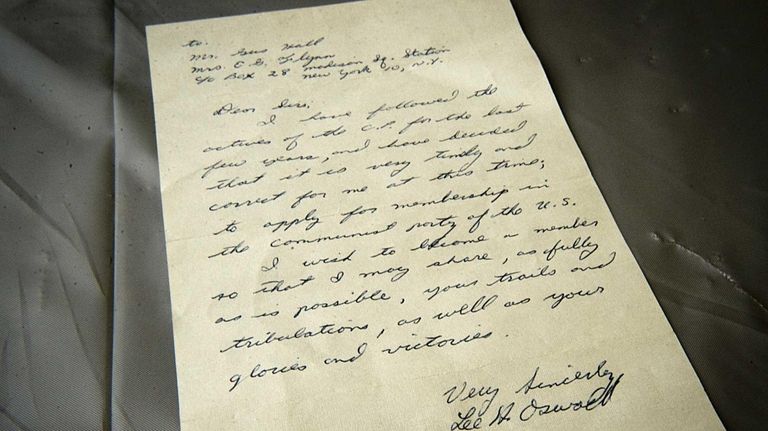 to.
Mr. Gus Hall
Mrs. E G. Flynn
c/o Box 28 madison Sq. Station
new york 10, N.Y.
Dear Sirs;
I have followed the
actives of the C.P. for the last
few years, and have decided
that it is very timly and
correct for me at this time;
to apply for membership in
the communist party of the U.S.
I wish to become a member
so that I may share, as fully
as is possible, your trails and
tribulations, as well as your
glories and victories.
Very Sincerely
Lee H Oswald